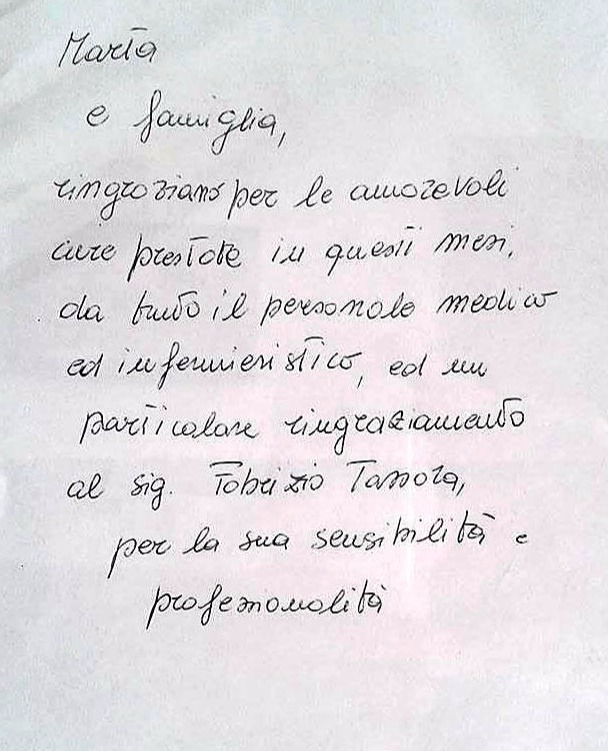 Marta
e famiglia,
ringraziano per le amorevoli
cure prestate in questi mesi,
da tutto il personale medico
ed infermieristico, ed un
particolare ringraziamento
al sig. Fabrizio
per la sua sensibilità e
professionalità